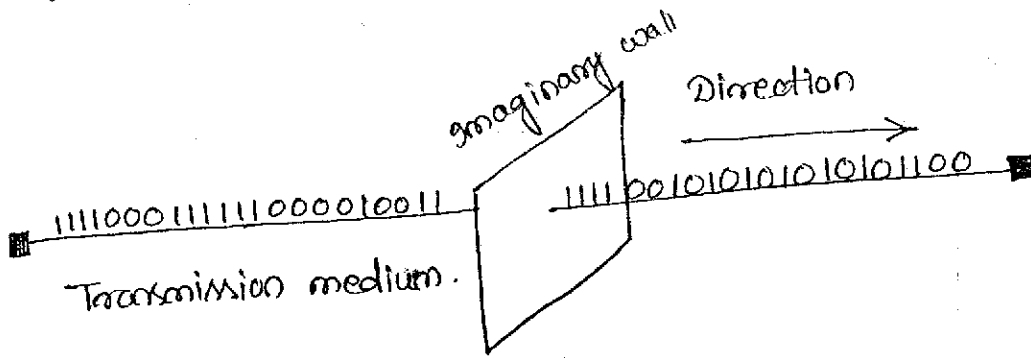 Imaginary wall
Direction
1111000111111000010011
1111001010101010101100
Transmission medium.